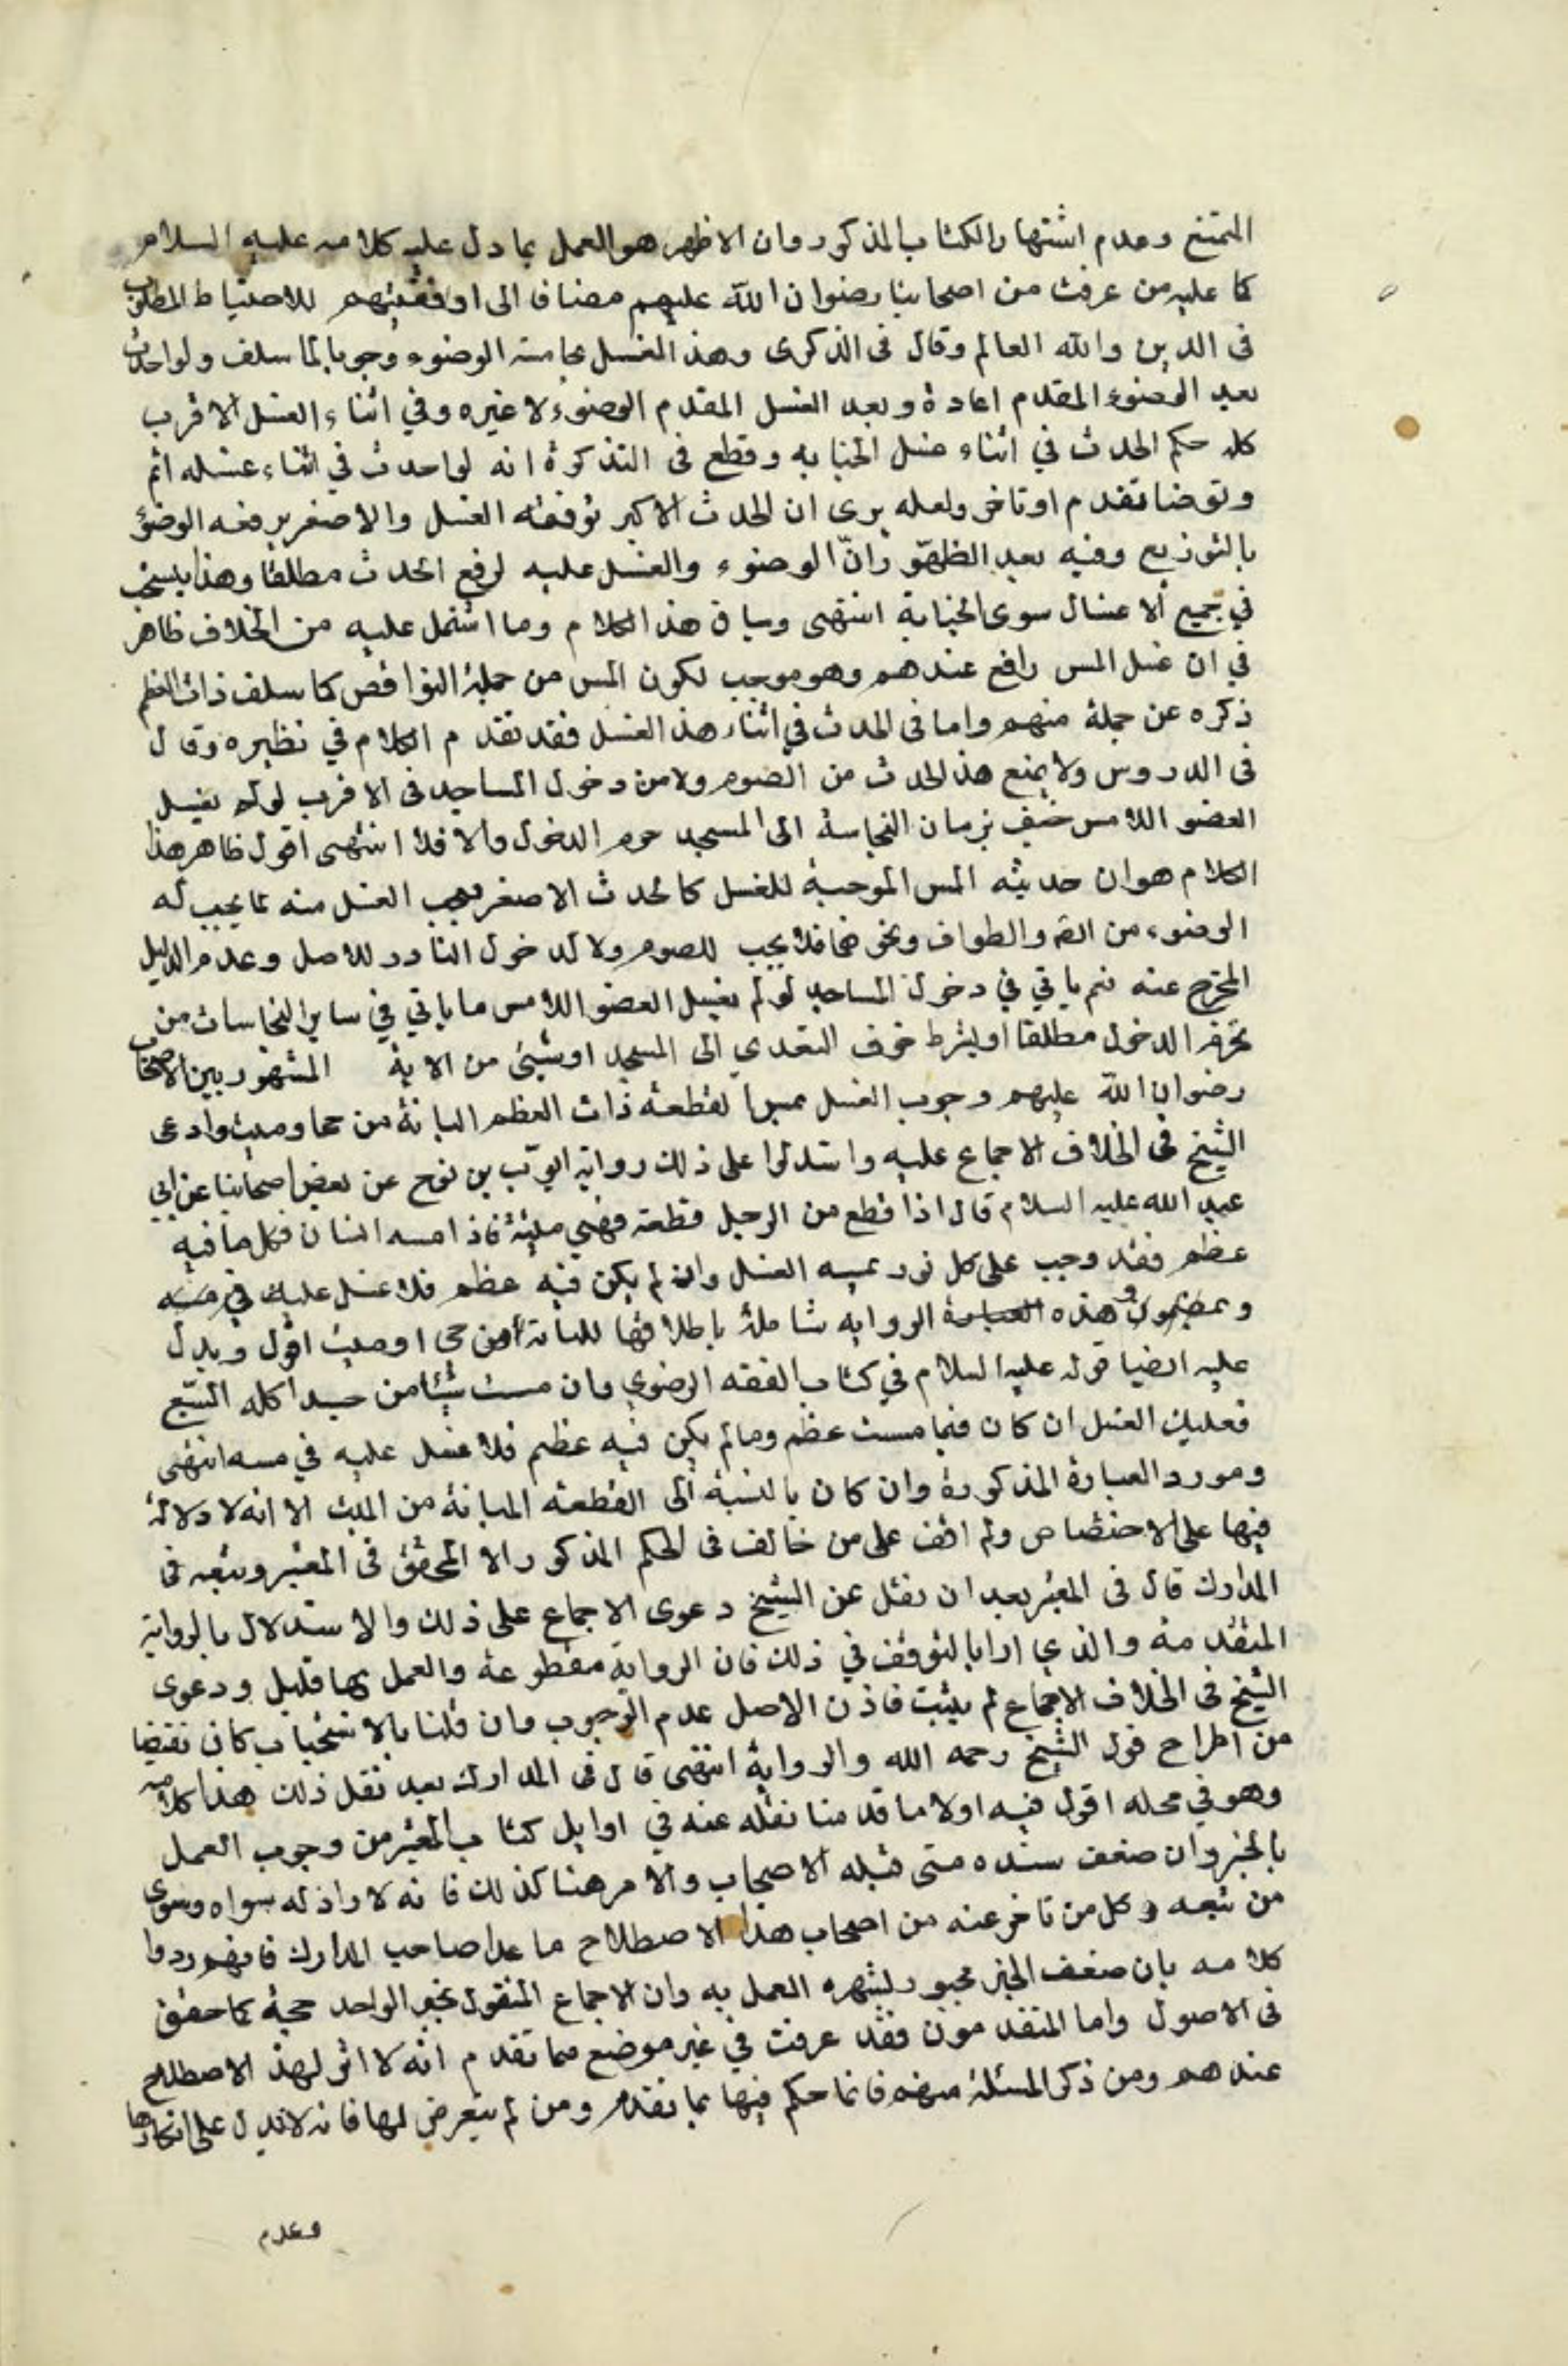 المتتبع وعدم اشتهار الكتاب المذكور وان الاظهر هو العمل بما دل عليه كلامه عليه السلام
كما عليه من عرفت من اصحابنا رضوان الله عليهم مضافا الى اوفقيتهم للاحتياط المطلوب
فى الدين والله العالم وقال فى الذكرى وهذا الغسل يجامعه الوضوء وجوبا لما سلف ولو احدث
بعد الوضوء المقدم اعاده وبعد الغسل المقدم الوضوء لا غيره وفي اثناء الغسل الاقرب
كله حكم الحدث في اثناء غسل الجنابه وقطع فى التذكرة انه لو احدث في اثناء غسله اتم
وتوضا تقدم او تاخر ولعله يرى ان الحدث الاكبر يرفعه الغسل والاصغر يرفعه الوضوء
بالتوزيع وفيه بعد لظهور ان الوضوء والغسل عليه لرفع الحدث مطلقا وهذا ينسحب
في جميع الاغسال سوى الجنابة انتهى وسياق هذا الكلام وما اشتمل عليه من الخلاف ظاهر
في ان غسل المس رافع عندهم وهو موجب لكون المس من جملة النواقض كما سلف ذات العظم
ذكره عن جملة منهم واما فى الحدث في اثناء هذا الغسل فقد تقدم الكلام في نظيره وقال
فى الدروس ولا يمنع هذا الحدث من الصوم ولا من دخول المساجد فى الاقرب لو لم يغسل
العضو اللامس خيف سريان النجاسة الى المسجد حرم الدخول والا فلا انتهى اقول ظاهر هذا
الكلام هو ان حدثية المس الموجبة للغسل كالحدث الاصغر يجب الغسل منه لما يجب له
الوضوء من الصلوة والطواف ونحوهما فلا يجب للصوم ولا لدخول المساجد للاصل وعدم الدليل
المخرج عنه نعم ياتي في دخول المساجد لو لم يغسل العضو اللامس ما ياتي في ساير النجاسات من
تحريم الدخول مطلقا او بشرط خوف التعدي الى المسجد او شيئ من الاته المشهور بين الاصحاب
رضوان الله عليهم وجوب الغسل بمس القطعة ذات العظم المبانة من حي او ميت وادعى
الشيخ فى الخلاف الاجماع عليه واستدلوا على ذلك رواية ايوب بن نوح عن بعض اصحابنا عن ابي
عبد الله عليه السلام قال اذا قطع من الرجل قطعة فهي ميتة فاذا مسه انسان فكل ما فيه
عظم فقد وجب على كل من يمسه الغسل وان لم يكن فيه عظم فلا غسل عليه في مسه
ومضمون هذه الروايه شاملة باطلاقها للمبانة من حى او ميت اقول ويدل
عليه ايضا قوله عليه السلام في كتاب الفقه الرضوي وان مسست شيئا من جسد اكله السبع
فعليك الغسل ان كان فيما مسست عظم وما لم يكن فيه عظم فلا غسل عليه في مسه انتهى
ومورد العبارة المذكورة وان كان بالنسبة الى القطعة المبانة من الميت الا انه لا دلالة
فيها على الاختصاص ولم اقف على من خالف فى الحكم المذكور الا المحقق فى المعتبر وتبعه فى
المدارك قال فى المعتبر بعد ان نقل عن الشيخ دعوى الاجماع على ذلك والاستدلال بالرواية
المتقدمة والذي اراه التوقف في ذلك فان الرواية مقطوعة والعمل بها قليل ودعوى
الشيخ فى الخلاف الاجماع لم يثبت فاذن الاصل عدم الوجوب وان قلنا بالاستحباب كان تفصيا
من اطراح قول الشيخ رحمه الله والرواية انتهى قال فى المدارك بعد نقل ذلك هذا كلامه
وهو في محله اقول فيه اولا ما قدمنا نقله عنه في اوايل كتاب المعتبر من وجوب العمل
بالخبر وان ضعف سنده متى قبله الاصحاب والامر هنا كذلك فانه لا راد له سواه وسوى
من تبعه وكل من تاخر عنه من اصحاب هذا الاصطلاح ما عدا صاحب المدارك فانهم ردوا
كلامه بان ضعف الخبر مجبور بشهرة العمل به وان الاجماع المنقول بخبر الواحد حجة كما حقق
فى الاصول واما المتقدمون فقد عرفت في غير موضع مما تقدم انه لا اثر لهذا الاصطلاح
عندهم ومن ذكر المسئلة منهم فانما حكم فيها بما تقدم ومن لم يتعرض لها فانه لا يدل على انكارها
وعدم